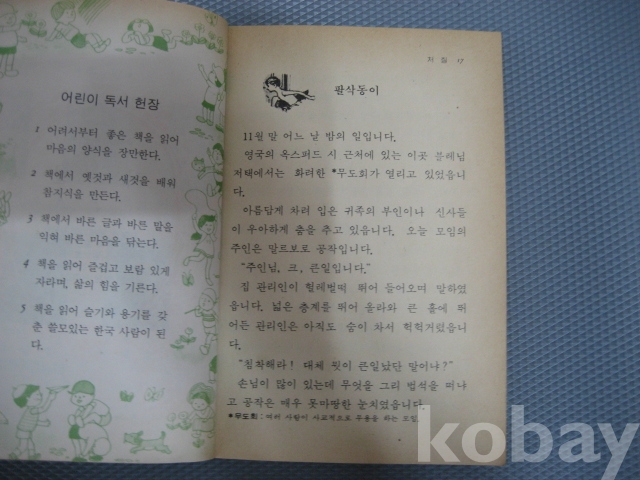 어린이 독서 헌장
1 어려서부터 좋은 책을 읽어
마음의 양식을 장만한다.
2 책에서 옛것과 새것을 배워
참지식을 만든다.
3 책에서 바른 글과 바른 말을
익혀 바른 마음을 닦는다.
4 책을 읽어 즐겁고 보람 있게
자라며, 삶의 힘을 기른다.
5 책을 읽어 슬기와 용기를 갖
춘 쓸모있는 한국 사람이 된
다.
17
팔삭동이
11월 말 어느 날 밤의 일입니다.
영국의 옥스퍼드 시 근처에 있는 이곳 블레님
저택에서는 화려한 *무도회가 열리고 있었습니
다.
아름답게 차려 입은 귀족의 부인이나 신사들
이 우아하게 춤을 추고 있습니다. 오늘 모임의
주인은 말르보로 공작입니다.
"주인님, 크, 큰일입니다."
집 관리인이 헐레벌떡 뛰어 들어오며 말하였
습니다. 넓은 층계를 뛰어 올라와 큰 홀에 뛰
어든 관리인은 아직도 숨이 차서 헉헉거렸습니
다.
"침착해라! 대체 뭣이 큰일났단 말이냐?"
손님이 많이 있는데 무엇을 그리 법석을 떠냐
고 공작은 매우 못마땅한 눈치였습니다.
*무도회: 여러 사람이 사교적으로 무용을 하는 모임.
kobay